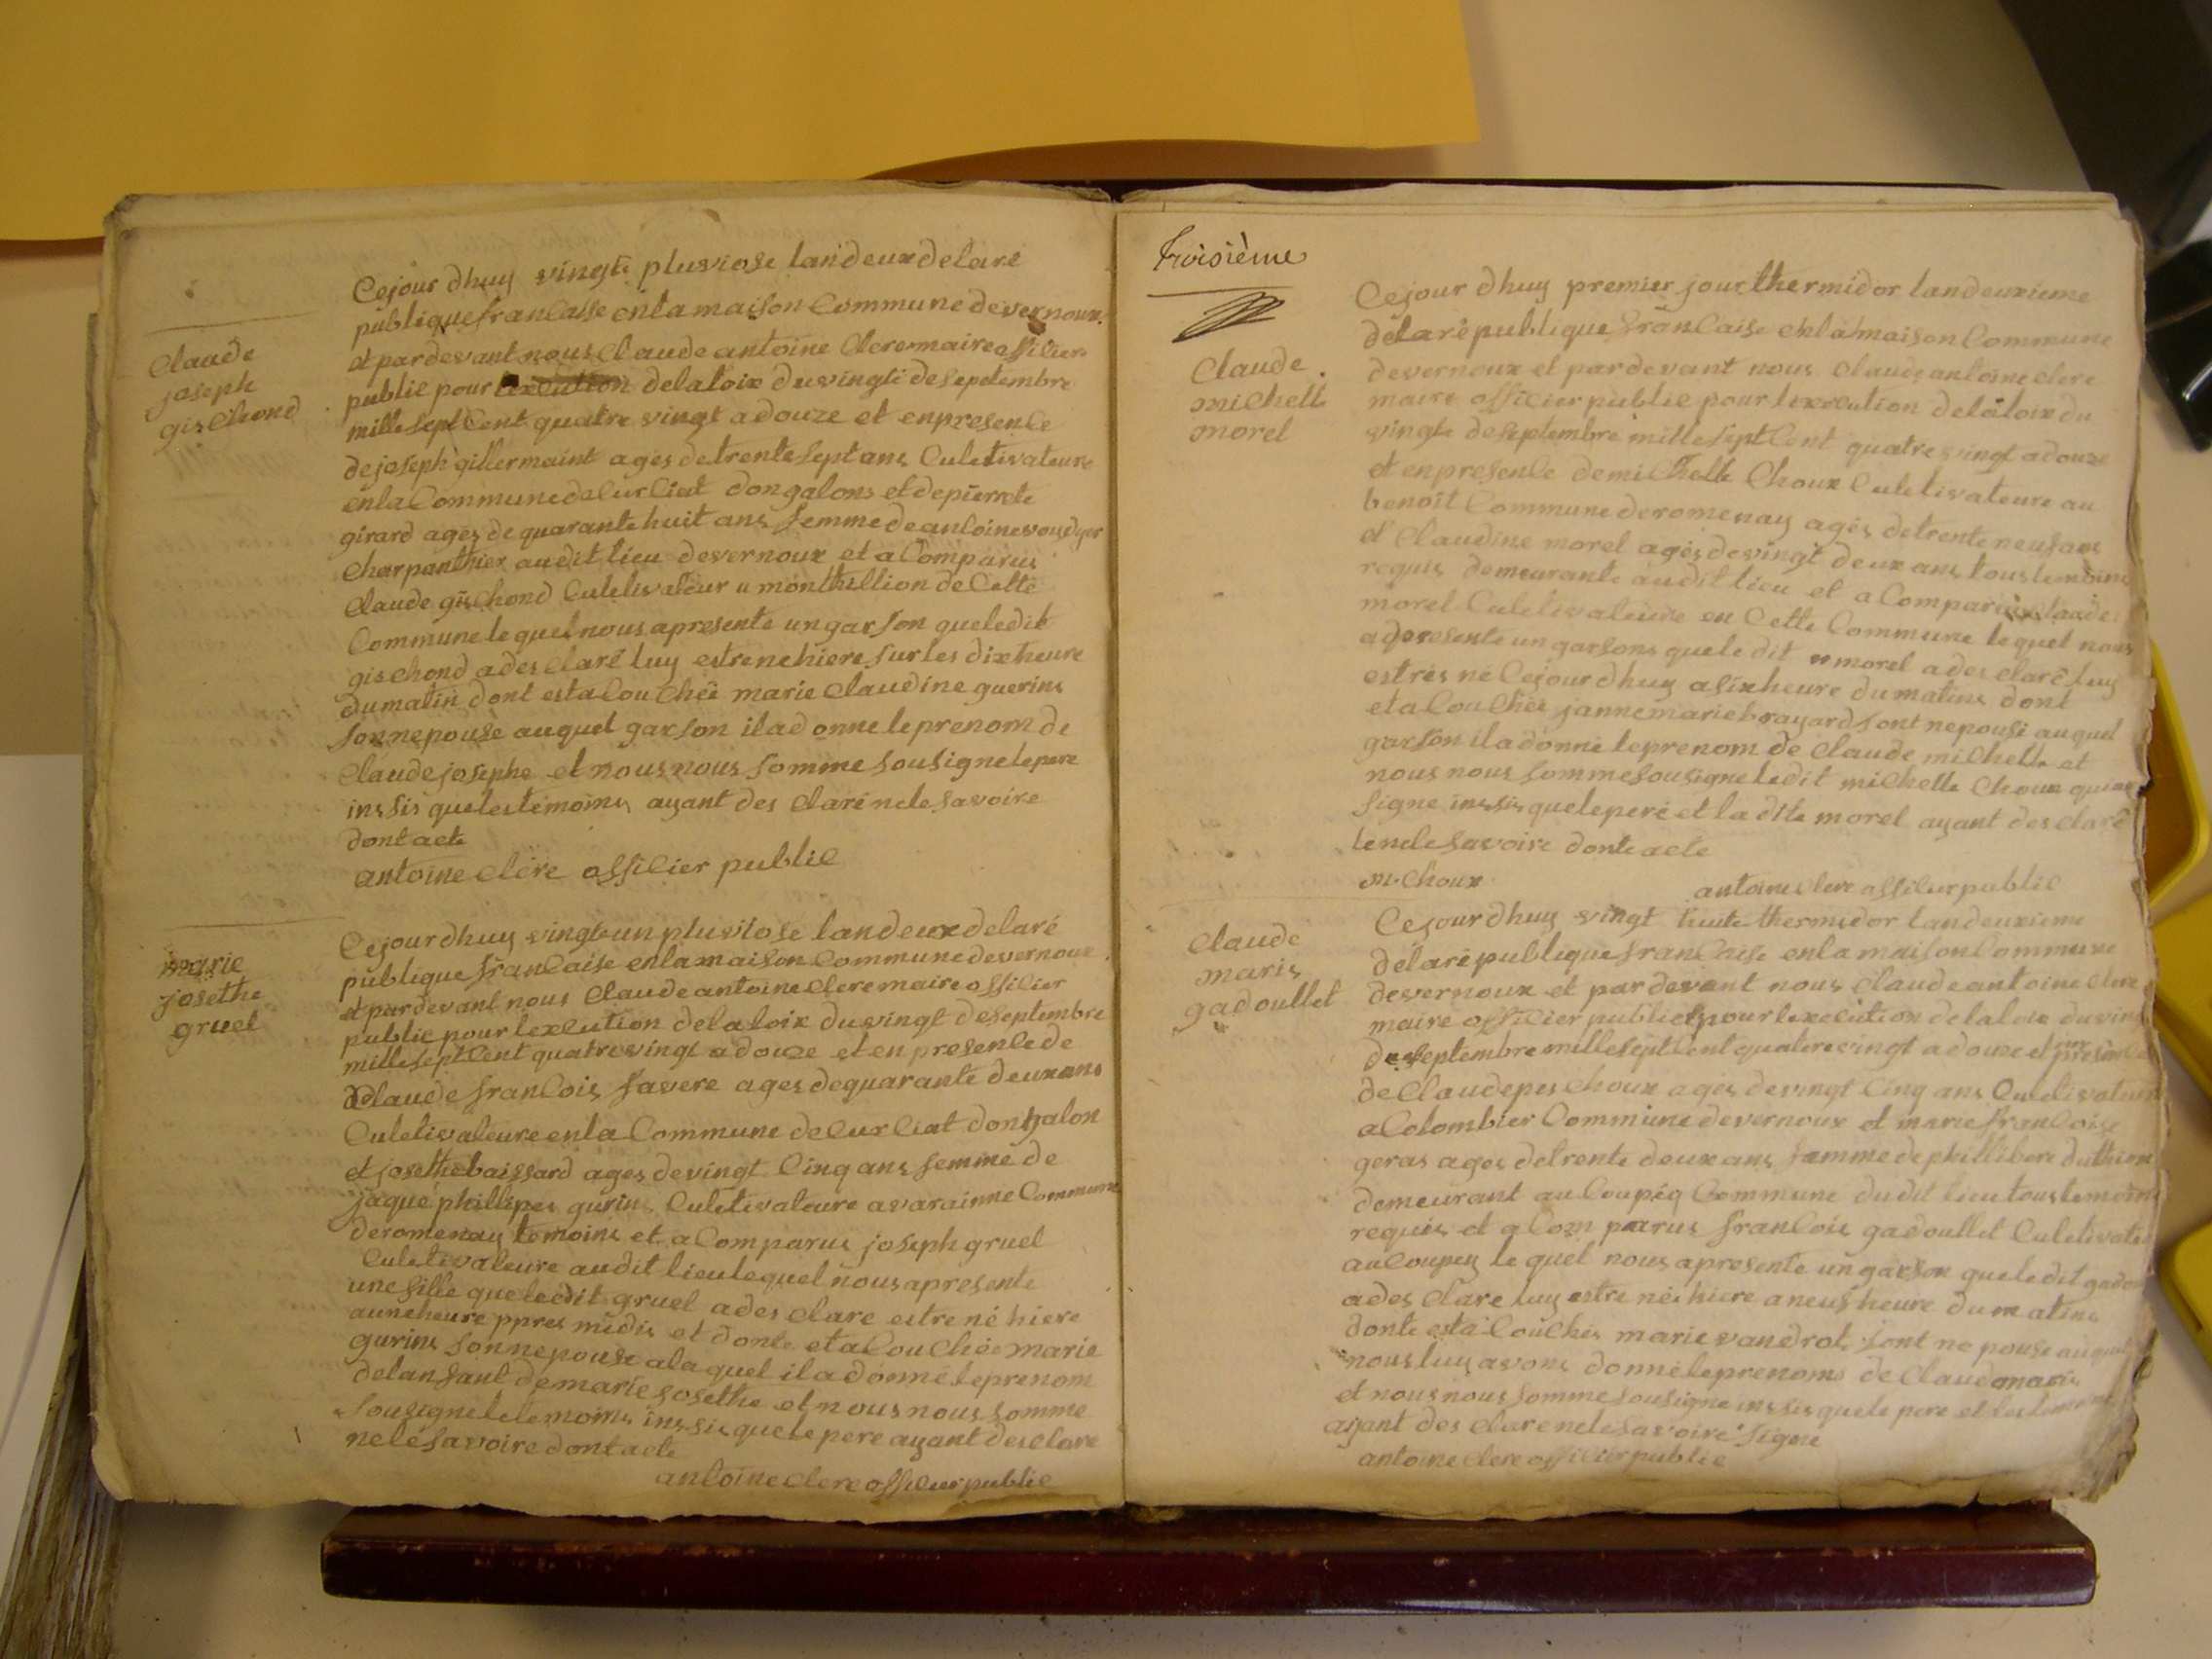 Claude
joseph
gischond
Cejour dhuy vingte pluviose lan deux de lare
publique francaise en la maison Commune de vernoux
et par devant nous Claude antoine Clere maire officier
public pour lexcution de la loix du vingti de sepetembre
mille sept Cent quatre vingt a douze et en presence
de joseph gillermaint ages de trente sept ans Culetivateure
en la Commune de Curciat dongalons et de pierrete
girard ages de quarante huit ans femme de antoine
Charpanthier audit lieu de vernoux et a Comparus
Claude gischond Culetivateur a monthillion de Cette
Commune le quel nous apresente un garson que le dit
gischond a des claré luy estre ne hiere sur les dix heure
du matin dont est a Couchée marie Claudine guerins
sonnepouse au quel garson il a donne le prenom de
Claude josephe et nous nous somme sousigne le pere
inssis que les temoins ayant des claré ne le savoire
dont acte
antoine clere officier public
marie
josethe
gruel
Cejour dhuy vingt un pluviose lan deux de laré
publique francaise en la maison Commune de vernoux
et par devant nous Claude antoine Clere maire officier
public pour lexcution de la loix du vingt de septembre
mille sept Cent quatre vingt a douze et en presence de
Claude francois favere ages de quarante deux ans
Culetivateure en la Commune de Curciat dongalon
et josethe baissard ages de vingt Cinq ans femme de
jaque phillipes gurins Culetivateure a varainne Commune
de romenay temoins et a Comparus joseph gruel
Culetivateure audit lieu le quel nous apresente
une fille que le dit gruel a des clare estre né hiere
a une heure ppres midis et donte et a Couchée marie
gurins sonnepouse a la quel il a donné le prenom
de lanfant de marie josethe et nous nous somme
sousigne le temoins inssis que le pere ayant des clare
ne le savoire dont acte
antoine clere officier public
troisième
Claude
michelle
morel
Cejour dhuy premier jour thermidor lan deuxieme
de la république francaise en la maison Commune
de vernoux et par devant nous Claude antoine clere
maire officier public pour lexecution de la loix du
vingte de septembre mille sept Cent quatre vingt a douze
et en presence de michelle Choux Culetivateure au
benoît Commune de romenay agés de trente neuf ans
et Claudine morel agés de vingt deux ans tous temoins
requis demeurante audit lieu et a Comparus Claude
morel Culetivateure en Cette Commune le quel nous
apresente un garsons que le dit morel a des claré luy
estres né Cejour dhuy a six heure du matins dont
et a Couchée janne marie brayard sont nepouse au quel
garson il a donné le prenom de Claude michelle et
nous nous somme sousigne le dit michelle Choux qui
signe inssis que le peré et la dite morel ayant des claré
le ne le savoire donte acte
m. Choux
antoine clere officier public
Claude
maris
gadoullet
Cejour dhuy vingt huite thermidor lan deuxieme
de la république francaise en la maison Commune
de vernoux et par devant nous Claude antoine clere
maire officier public pour lexecution de la loix du vingt
de septembre mille sept Cent quatere vingt a douze et en presence
de Claude pes Choux agés de vingt Cinq ans Culetivateure
a Colombier Commune de vernoux et marie francoise
geras ages de trente deux ans famme de phillibere duthion
demeurant au Coupéq Commune du dit lieu tous temoins
requis et a Comparus francois gadoullet Culetivateu
au Coupey le quel nous apresente un garson que le dit gadou
a des clare luy estre née hiere a neuf heure du matins
donte est a Couchés marie vandrot sont nepouse au quel
nous luy avons donné le prenoms de Claude maris
et nous nous somme sousigne inssis que le pere et les temoins
ayant des clare ne le savoire signe
antoine clere officier public